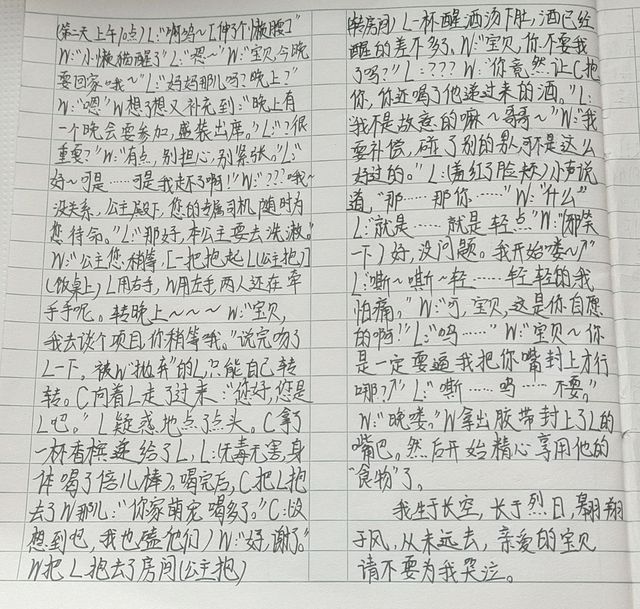 (第二天上午10点) L:"啊呜~[伸了个小懒腰]"
W:"小懒猫醒了"L:"嗯~"W:"宝贝,今晚
要回家哦~"L:"妈妈那儿吗?晚上?"
W:"嗯"W想了想又补充到:"晚上有
一个晚会要参加,盛装出席。"L:"?很
重要?"W:"有点,别担心,别紧张。"L:"
好~可是……可是我走不了啊!"W:"???哦~
没关系,公主殿下,您的专属司机随时为
您待命。"L:"那好,本公主要去洗漱。"
W:"公主您稍等,[一把抱起L(公主抱)]
(饭桌上) L用右手,W用左手,两人还在牵
手手呢。转晚上~~~~W:"宝贝,
我去谈个项目你稍等我。"说完吻了
L一下,被W"抛弃"的L,只能自己转
转。C向着L走了过来:"您好,您是
L吧。"L疑惑地点了点头。C拿了
一杯香槟递给了L,L:(无毒无害,身
体喝了倍儿棒),喝完后,C把L抱
去了W那儿:"你家萌宠喝多了。"C:(没
想到吧,我也磕他们) W:"好,谢了。"
W把L抱去了房间(公主抱)
(转房间) L一杯醒酒汤下肚,酒已经
醒的差不多了,W:"宝贝,你不要我
了吗?"L:???W:"你竟然让C抱
你,你还喝了他递过来的酒。"L:
"我不是故意的嘛~哥哥~"W:"我
要补偿,碰了别的男人可不是这么
好过的。"L:(羞红了脸),小声说
道,"那……那你……"W:"什么"
L:"就是……就是轻点"W:"(邪笑
一下)好,没问题。我开始喽~?"
L:"嘶~嘶~轻……轻轻的我
怕痛。"W:"可,宝贝,这是你自愿
的啊!"L:"呜……"W:"宝贝~你
是一定要逼我把你嘴封上才行
哪??"L:"嘶……呜……不要。"
W:"晚喽。"W拿出胶带封上了L的
嘴巴。然后开始精心享用他的
"食物"了。
我生于长空,长于烈日,翱翔
于风,从未远去,亲爱的宝贝
请不要为我哭泣。